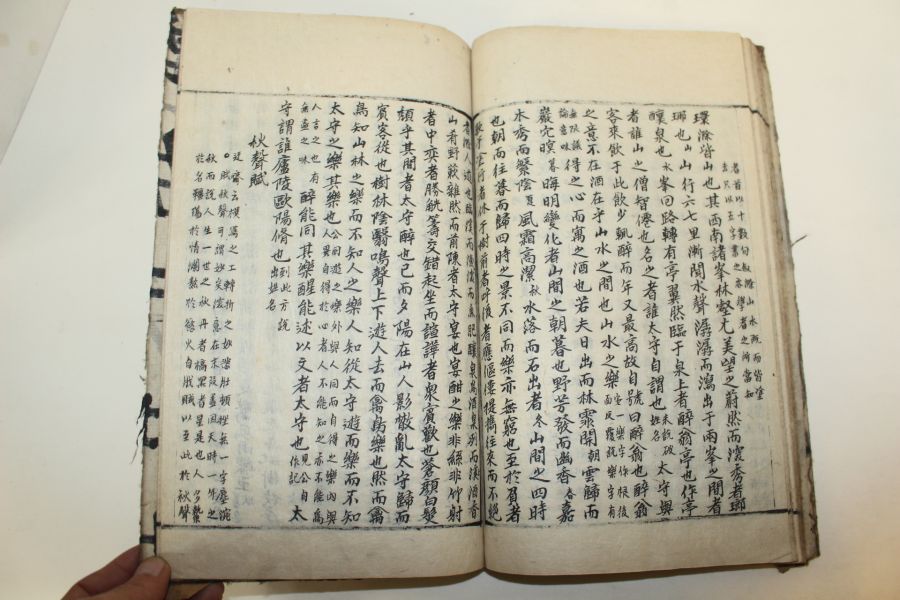 者首以十數句叙滁山水既而皆塗
去只以五字書之為學者之所當知
環滁皆山也其西南諸峯林壑尤美望之蔚然而深秀者瑯
瑯也山行六七里漸聞水聲潺潺而瀉出于兩峯之間者
釀泉也峯回路轉有亭翼然臨于泉上者醉翁亭也作亭
者誰山之僧智僊也名之者誰太守自謂也未說破姓名太守與
客來飲于此飲少輒醉而年又最高故自號曰醉翁也醉翁
之意不在酒在乎山水之間也山水之樂
得之心而寓之酒也若夫日出而林霏開朝雲歸而
巖穴暝暮晦明變化者山間之朝暮也野芳發而幽香春嘉
木秀而繁陰夏風霜高潔秋水落而石出者冬山間之四時
也朝而往暮而歸四時之景不同而樂亦無窮也至於負者
歌于塗行者休于樹前者呼後者應傴僂提携往來而不絕
者滁人遊也臨溪而漁溪深而魚肥釀泉為酒泉冽而酒香
山肴野蔌雜然而前陳者太守宴也宴酣之樂非絲非竹射
者中奕者勝觥籌交錯起坐而諠譁者衆賓歡也蒼顔白髮
頹乎其間者太守醉也已而夕陽在山人影散亂太守歸而
賓客從也樹林陰翳鳴聲上下遊人去而禽鳥樂也然而禽
鳥知山林之樂而不知人之樂人知從太守遊而樂而不知
太守之樂其樂也
醉能同其樂醒能述以文者太守也太
守謂誰廬陵歐陽脩也到此方說出姓名
秋聲賦
迂齋云模寫之工轉折之妙悲壯頓挫無一字塵涴